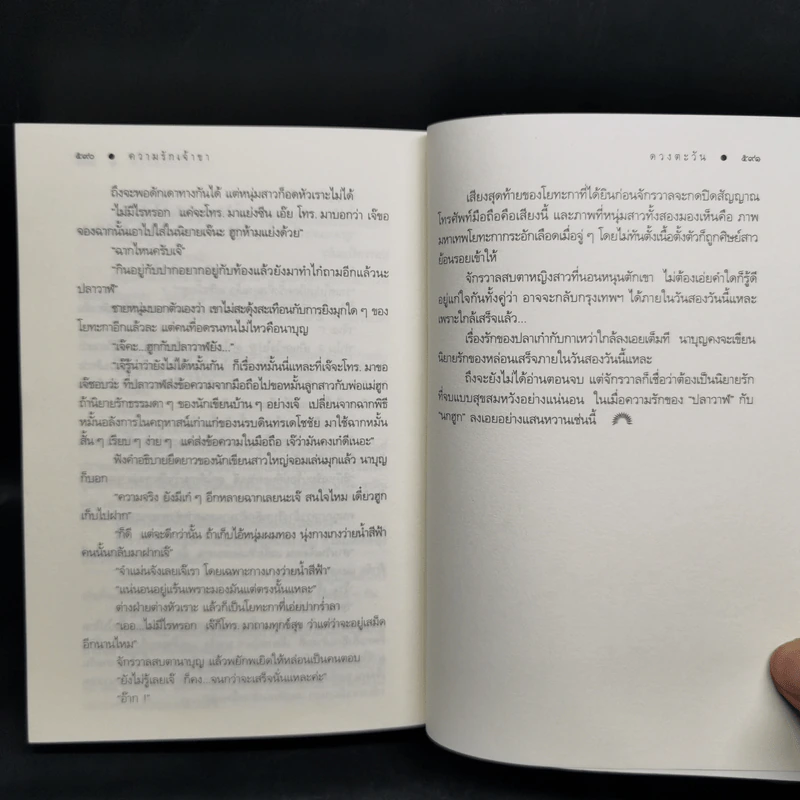 ๕๙๐ ● ความรักเจ้าขา
ถึงจะพอดักเดาทางกันได้ แต่หนุ่มสาวก็อดหัวเราะไม่ได้
“ไม่มีไรหรอก แค่จะโทร. มาแย่งซีน เอ๊ย โทร. มาบอกว่า เจ๊ขอ
จองฉากนั้นเอาไปใส่ในนิยายเจ๊นะ ฮูกห้ามแย่งด้วย”
“ฉากไหนครับเจ๊”
“กินอยู่กับปากอยากอยู่กับท้องแล้วยังมาทำไก๋ถามอีกแล้วนะ
ปลาวาฬ”
ชายหนุ่มบอกตัวเองว่า เขาไม่สะดุ้งสะเทือนกับการยิงมุกใด ๆ ของ
โยทะกาอีกแล้วละ แต่คนที่อดรนทนไม่ไหวคือนาบุญ
“เจ๊คะ...ฮูกกับปลาวาฬยัง...”
“เจ๊รู้น่าว่ายังไม่ได้หมั้นกัน ก็เรื่องหมั้นนี่แหละที่เจ๊จะโทร. มาขอ
เจ๊ชอบว่ะ ที่ปลาวาฬส่งข้อความจากมือถือไปขอหมั้นลูกสาวกับพ่อแม่ฮูก
ถ้านิยายรักธรรมดา ๆ ของนักเขียนบ้าน ๆ อย่างเจ๊ เปลี่ยนจากฉากพิธี
หมั้นอลังการในคฤหาสน์เก่าแก่ของนรบดินทรเดโชชัย มาใช้ฉากหมั้น
สั้น ๆ เรียบ ๆ ง่าย ๆ แค่ส่งข้อความในมือถือ เจ๊ว่ามันคงเก๋ดีเนอะ”
ฟังคำอธิบายยืดยาวของนักเขียนสาวใหญ่จอมเล่นมุกแล้ว นาบุญ
ก็บอก
“ความจริง ยังมีเก๋ ๆ อีกหลายฉากเลยนะเจ๊ สนใจไหม เดี๋ยวฮูก
เก็บไปฝาก”
“ก็ดี แต่จะดีกว่านั้น ถ้าเก็บไอ้หนุ่มผมทอง นุ่งกางเกงว่ายน้ำสีฟ้า
คนนั้นกลับมาฝากเจ๊”
“จำแม่นจังเลยเจ๊เรา โดยเฉพาะกางเกงว่ายน้ำสีฟ้า”
“แน่นอนอยู่แล้นเพราะมองมันแต่ตรงนั้นแหละ”
ต่างฝ่ายต่างหัวเราะ แล้วก็เป็นโยทะกาที่เอ่ยปากร่ำลา
“เออ...ไม่มีไรหรอก เจ๊ก็โทร. มาถามทุกข์สุข ว่าแต่ว่าจะอยู่เสม็ด
อีกนานไหม”
จักรวาลสบตานาบุญ แล้วพยักพเยิดให้หล่อนเป็นคนตอบ
“ยังไม่รู้เลยเจ๊ ก็คง...จนกว่าจะเสร็จนั่นแหละค่ะ”
“อ๊าก !”
ดวงตะวัน ● ๕๙๑
เสียงสุดท้ายของโยทะกาที่ได้ยินก่อนจักรวาลจะกดปิดสัญญาณ
โทรศัพท์มือถือคือเสียงนี้ และภาพที่หนุ่มสาวทั้งสองมองเห็นคือ ภาพ
มหาเทพโยทะกากระอักเลือดเมื่อจู่ ๆ โดยไม่ทันตั้งเนื้อตั้งตัวก็ถูกศิษย์สาว
ย้อนรอยเข้าให้
จักรวาลสบตาหญิงสาวที่นอนหนุนตักเขา ไม่ต้องเอ่ยคำใดก็รู้ดี
อยู่แก่ใจกันทั้งคู่ว่า อาจจะกลับกรุงเทพฯ ได้ภายในวันสองวันนี้แหละ
เพราะใกล้เสร็จแล้ว...
เรื่องรักของปลาเก๋ากับกาเหว่าใกล้ลงเอยเต็มที นาบุญคงจะเขียน
นิยายรักของหล่อนเสร็จภายในวันสองวันนี้แหละ
ถึงจะยังไม่ได้อ่านตอนจบ แต่จักรวาลก็เชื่อว่าต้องเป็นนิยายรัก
ที่จบแบบสุขสมหวังอย่างแน่นอน ในเมื่อความรักของ “ปลาวาฬ” กับ
“นกฮูก” ลงเอยอย่างแสนหวานเช่นนี้